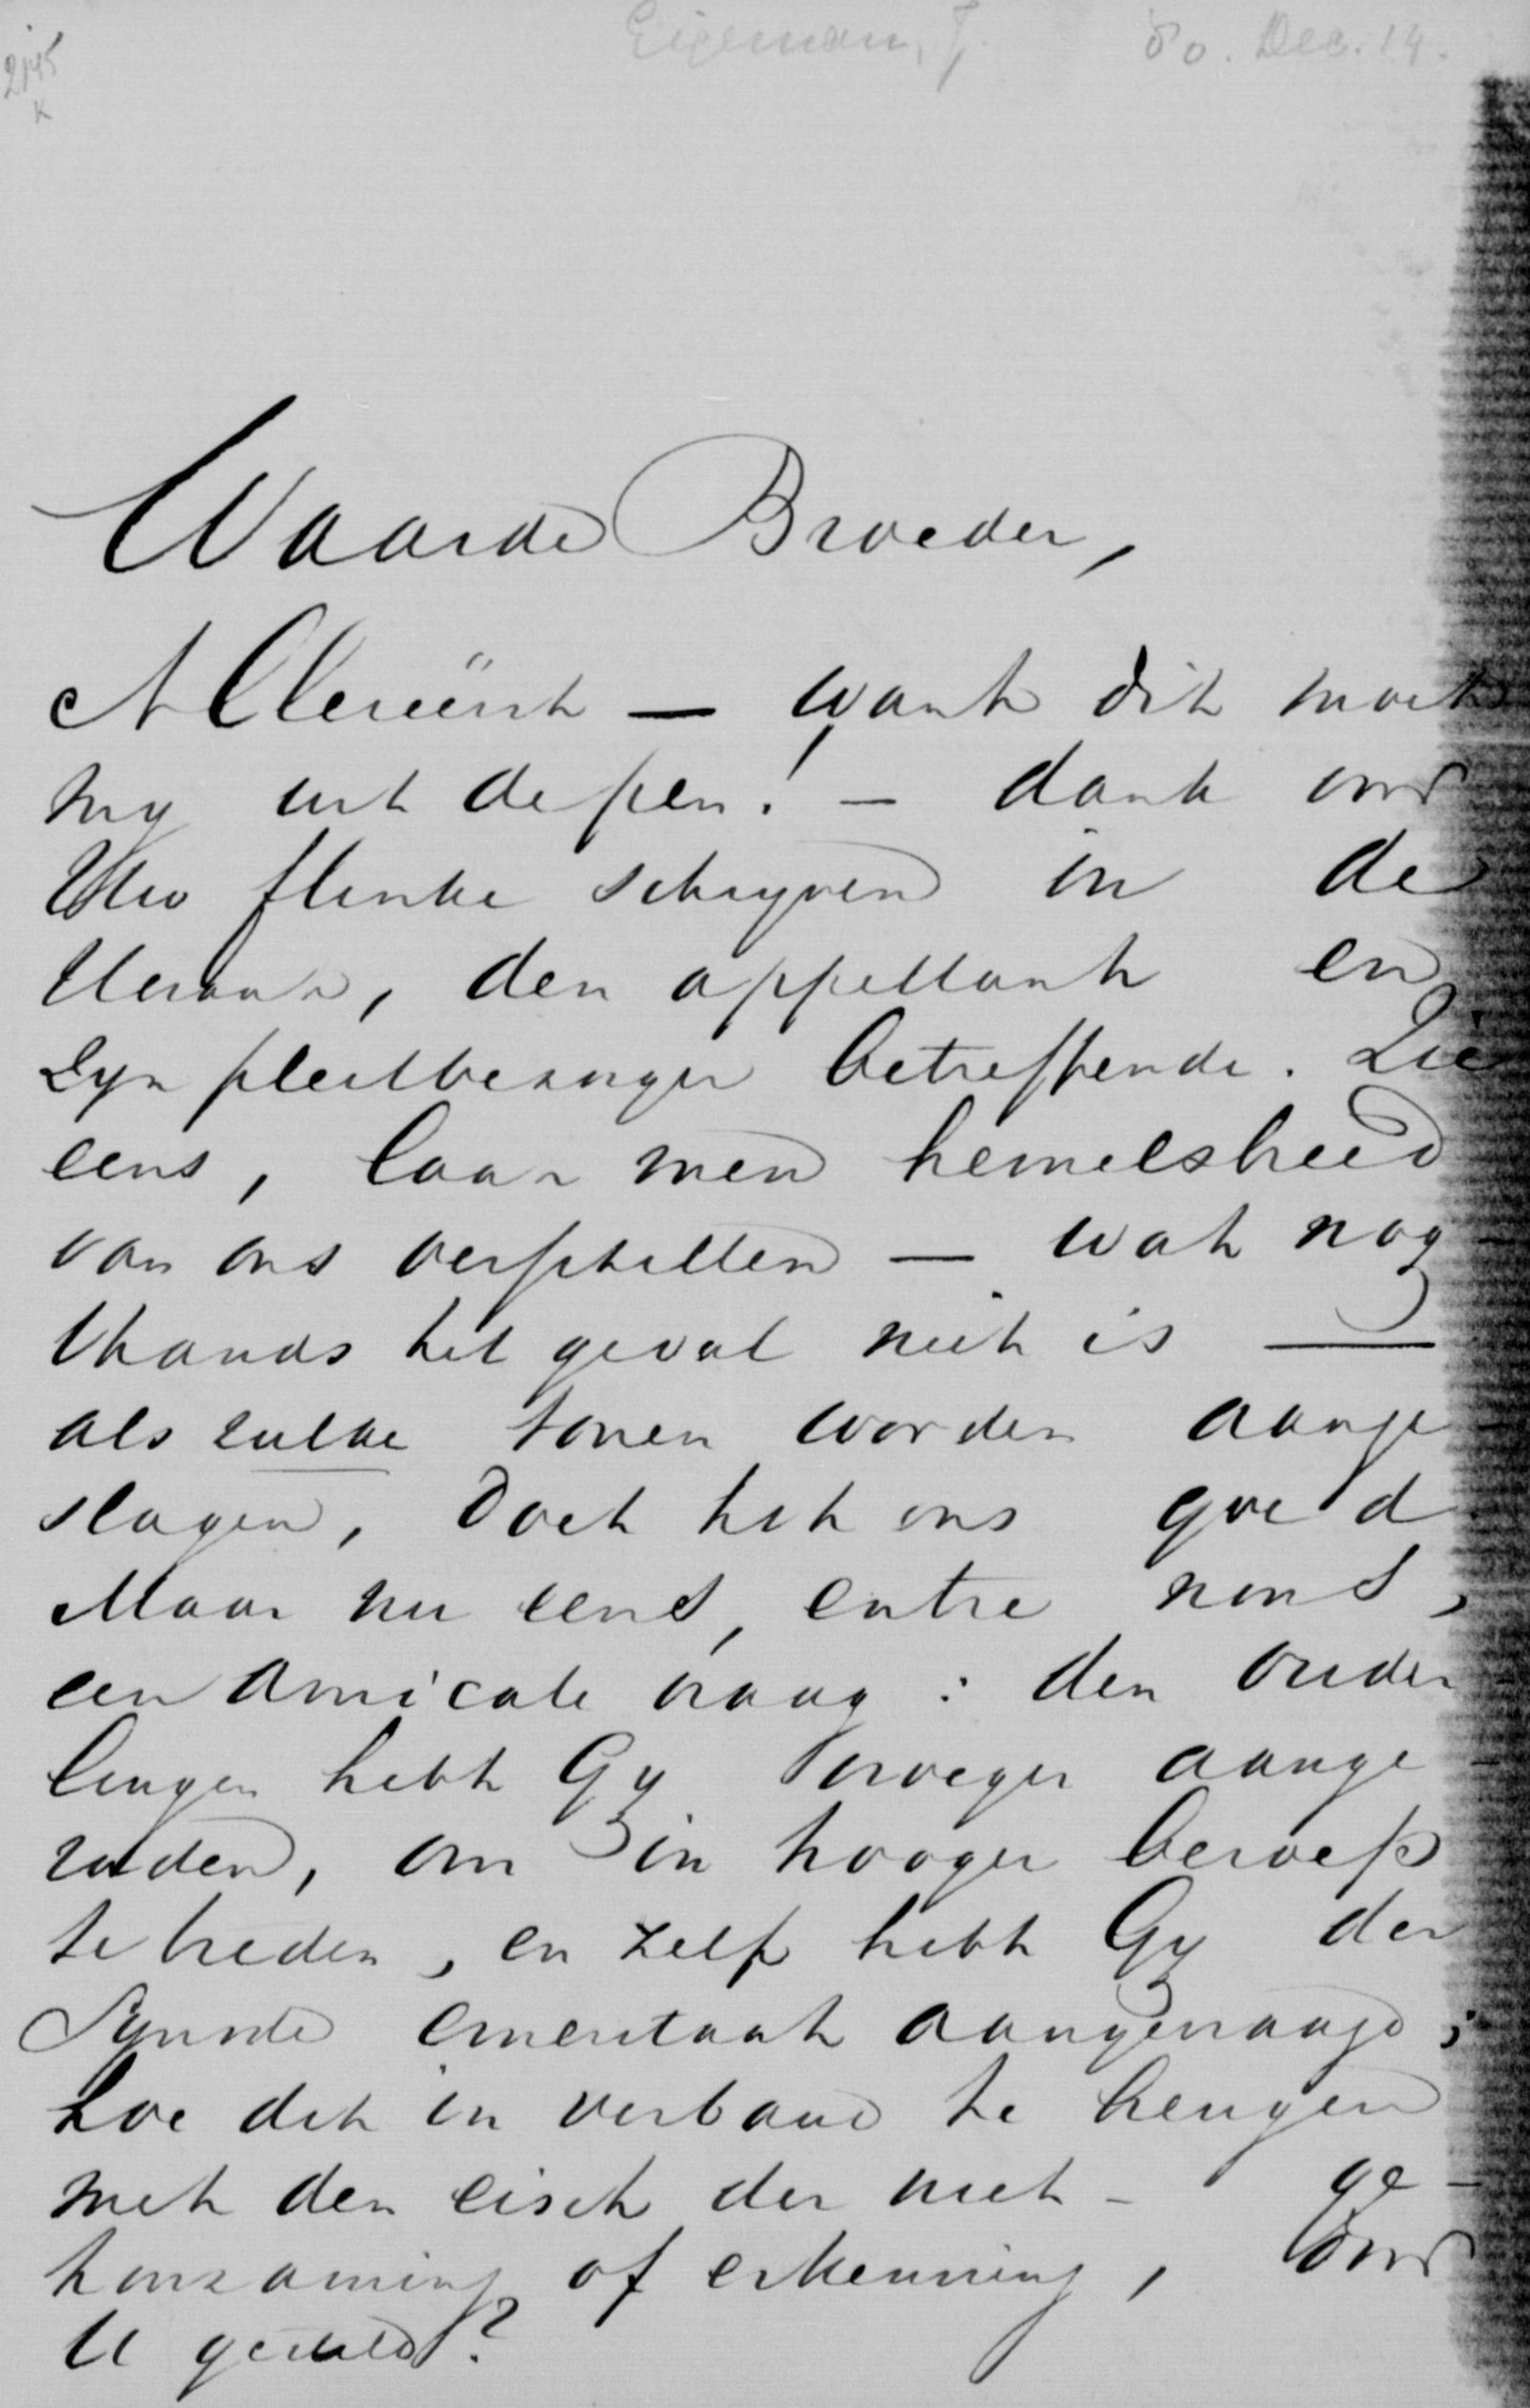 Eigeman, J. 80. Dec. 14.
Waarde Broeder,
Allereerst — want dit moet
my uit de pen! — dank voor
Uw flinke schryven in de
Heraut, den appellant en
zyn pleitbezorger betreffende. Zie
eens, laat men hemelsbreed
van ons verschillen — wat nog-
thands het geval niet is —
als zulke tonen worden aange-
slagen, doet het ons goed.
Maar nu eens, entre nous,
een amicale vraag: den ouder
lingen hebt Gy vroeger aange-
raden, om in hooger beroep
te treden, en zelf hebt Gy der
Synode emeritaat aangevraagd;
hoe dit in verband te brengen
met den eisch der niet- ge-
hoorzaming of erkenning, door
U gesteld?